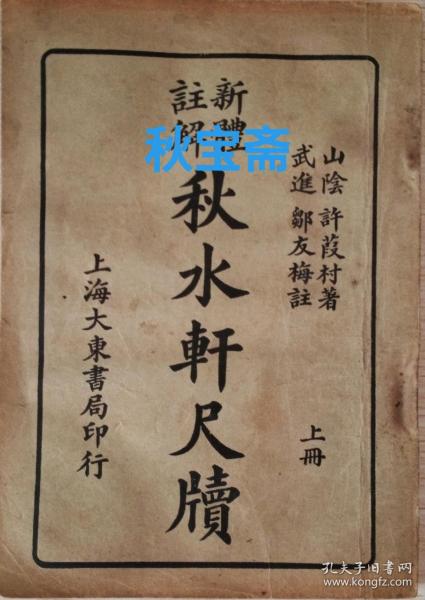 山陰 許葭村著
武進 鄒友梅註
上冊
新體
註解
秋水軒尺牘
上海大東書局印行
秋宝斋
孔夫子旧书网
www.kongfz.com